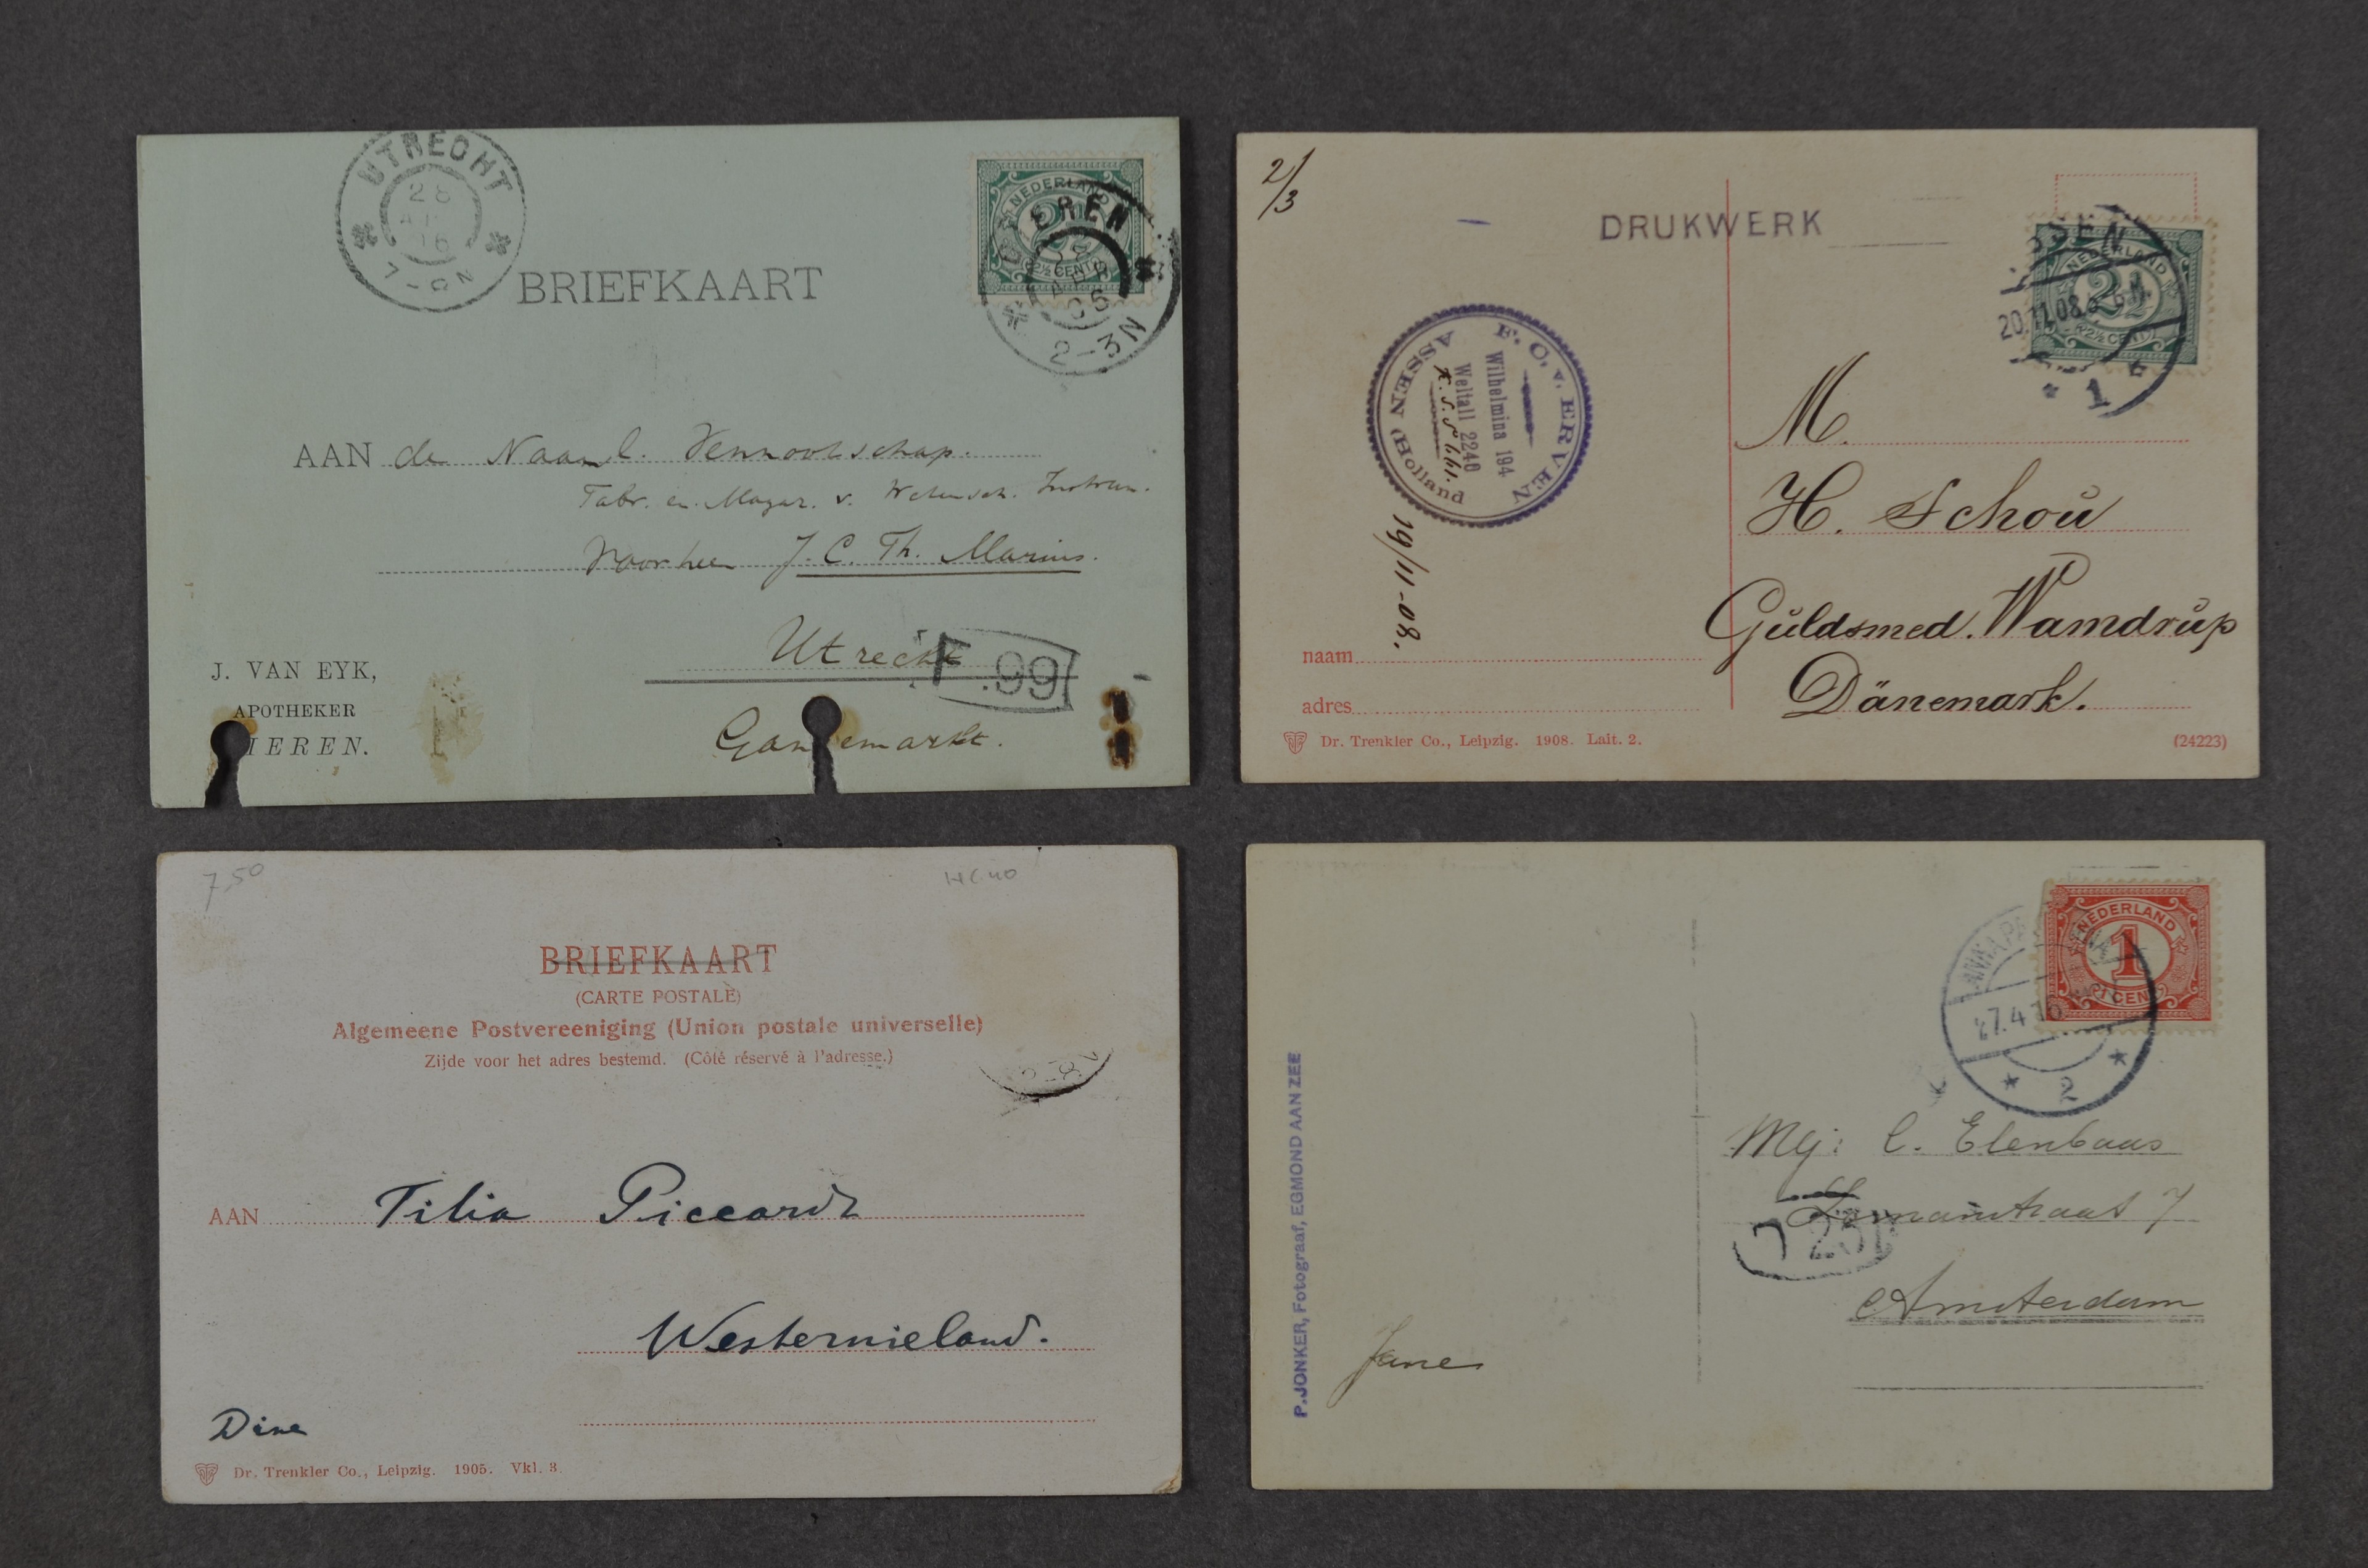 UTRECHT
28
06
BRIEFKAART
NEDERLAND
2½
2½ CENT
EREN
06
2-3N
AAN de Naaml. Vennootschap.
Fabr. en. Magaz. v. Wetensch. Instrum.
Voorheen J. C. Th. Marius.
Utrecht
F.99
Ganzemarkt.
J. VAN EYK,
APOTHEKER
IEREN.
2/3
DRUKWERK
SSEN
NEDERLAND
2½
2½ CENT
20.11.08.
1
F. O. v. ERVEN
ASSEN (Holland
Wilhelmina 194
Weltall 2246
19/11-08.
M.
H. Schou
Guldsmed. Wamdrup
Dänemark.
naam
adres
Dr. Trenkler Co., Leipzig. 1908. Lait. 2.
(24223)
7,50
BRIEFKAART
(CARTE POSTALE)
Algemeene Postvereeniging (Union postale universelle)
Zijde voor het adres bestemd. (Côté réservé à l'adresse.)
AAN Tilia Piccardt
Westernieland.
Dine
Dr. Trenkler Co., Leipzig. 1905. Vkl. 3.
NEDERLAND
1
1 CENT
27.4.16
2
P. JONKER, Fotograaf, EGMOND AAN ZEE
Mej: C. Elenbaas
Zomanstraat 7
Amsterdam
Jane